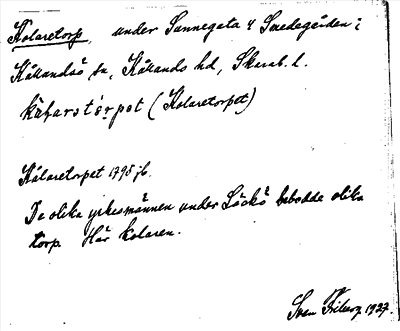 Kolaretorp, under Sannegata 4 Smedegården i
Kållandsö sn, Kållands hd, Skarab. l.
(Kolaretorpet)
Kålaretorpet 1795 jb.
De olika yrkesmännen under Läckö bebodde olika
torp. Här kolaren.
Sven Friberg 1927.